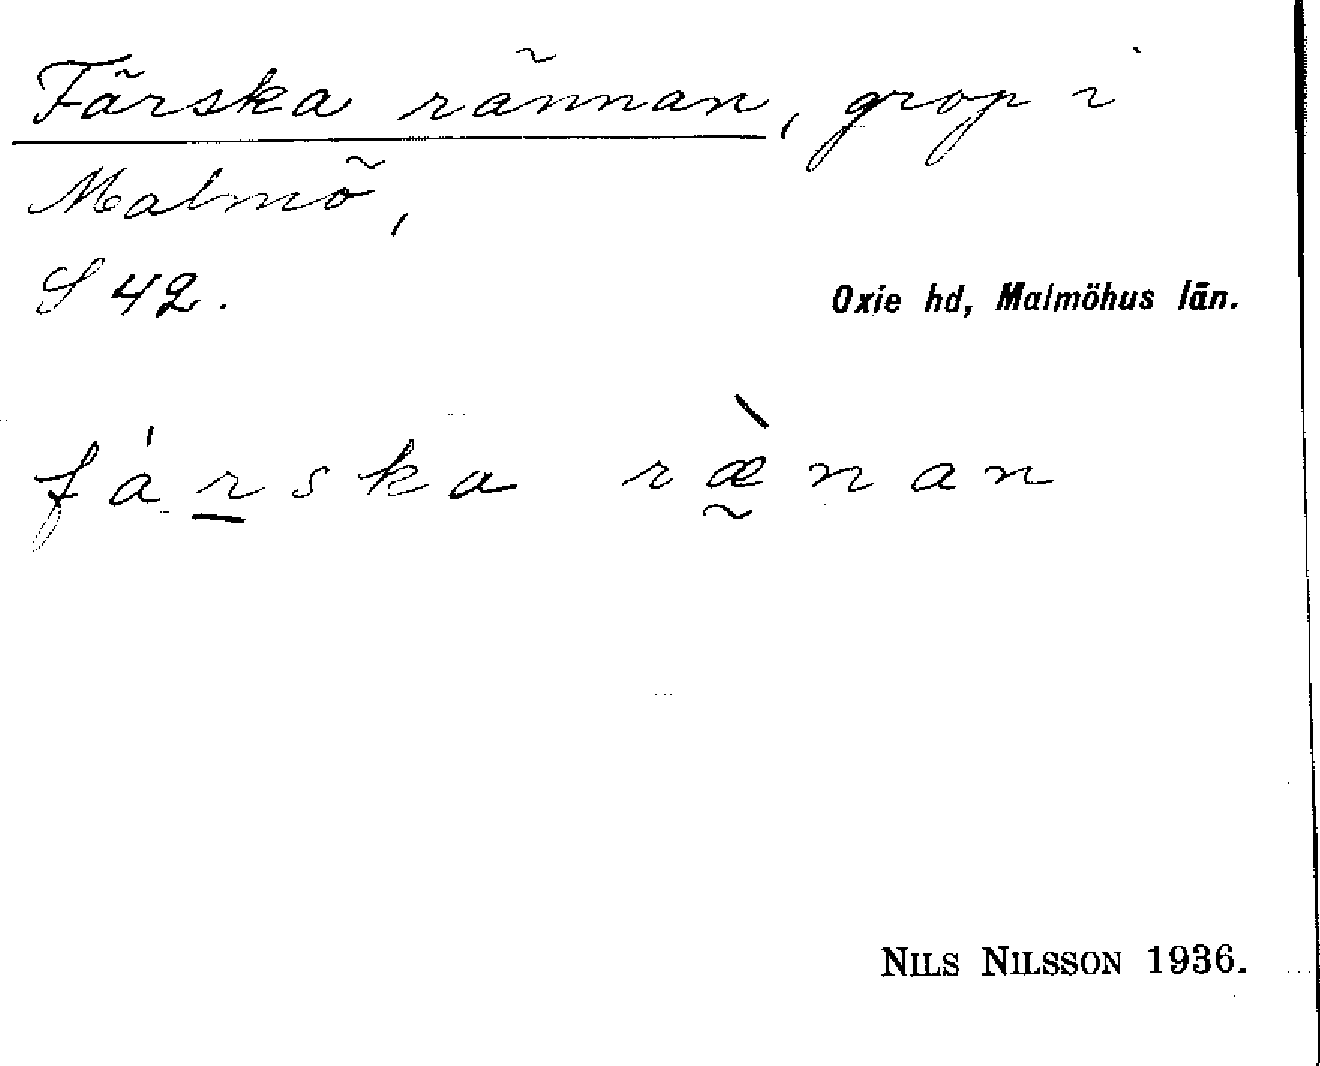 Färska rännan, grop i
Malmö,
S 42.
Oxie hd, Malmöhus län.
fárska ræ̀nan
NILS NILSSON 1936.